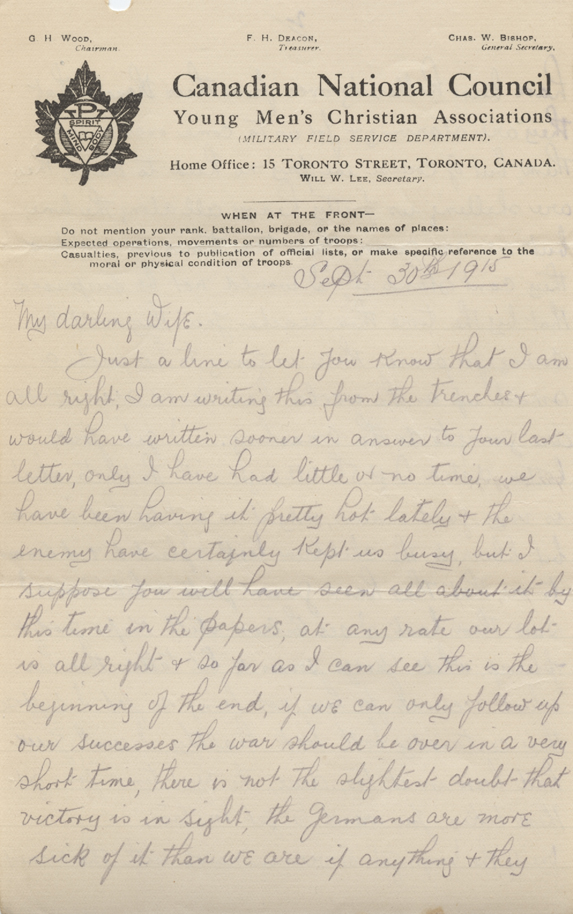 G H WOOD,
Chairman.
F. H. DEACON,
Treasurer.
CHAS. W. BISHOP,
General Secretary,
YPI
SPIRIT
MIND
BODY
Canadian National Council
Young Men's Christian Associations
(MILITARY FIELD SERVICE DEPARTMENT).
Home Office: 15 TORONTO STREET, TORONTO, CANADA.
WILL W. LEE, Secretary.
WHEN AT THE FRONT—
Do not mention your rank. battalion, brigade, or the names of places:
Expected operations, movements or numbers of troops:
Casualties, previous to publication of official lists, or make specific reference to the
moral or physical condition of troops
Sept 30th 1915
My darling Wife.
Just a line to let you know that I am
all right, I am writing this from the trenches +
would have written sooner in answer to your last
letter, only I have had little or no time, we
have been having it pretty hot lately + the
enemy have certainly kept us busy, but I
suppose you will have seen all about it by
this time in the papers, at any rate our lot
is all right + so far as I can see this is the
beginning of the end, if we can only follow up
our successes the war should be over in a very
short time, there is not the slightest doubt that
victory is in sight, the Germans are more
sick of it than we are if anything + they